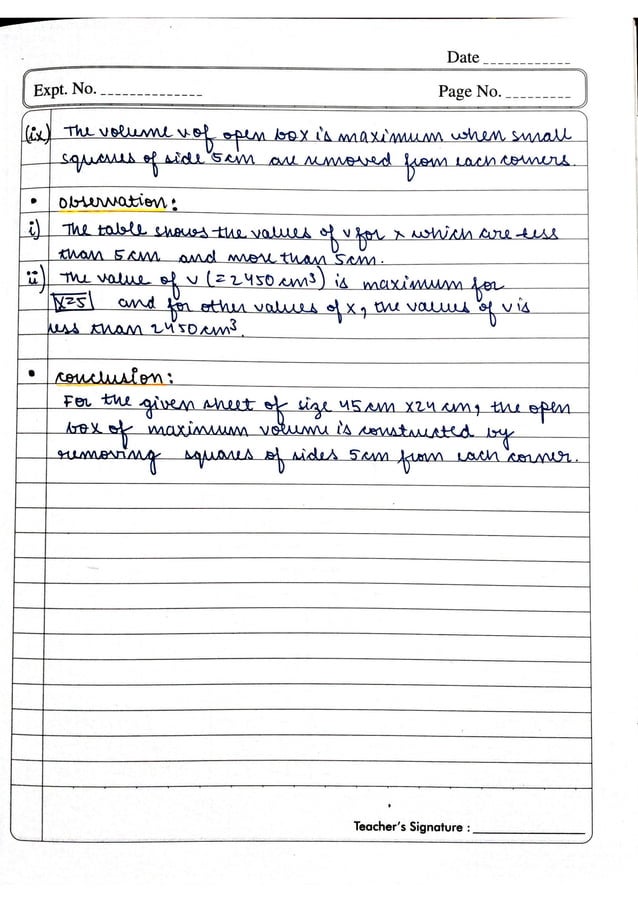 Date ____________
Expt. No. ______________
Page No. _________
(ix) The volume v of open box is maximum when small
squares of side 5cm are removed from each corners.
• Observation:
i) The table shows the values of v for x which are less
than 5cm and more than 5cm.
ii) The value of v (=2450 cm³) is maximum for
x=5 and for other values of x, the values of v is
less than 2450 cm³.
• Conclusion:
For the given sheet of size 45cm x24 cm, the open
box of maximum volume is constructed by
removing squares of sides 5cm from each corner.
Teacher's Signature : ________________